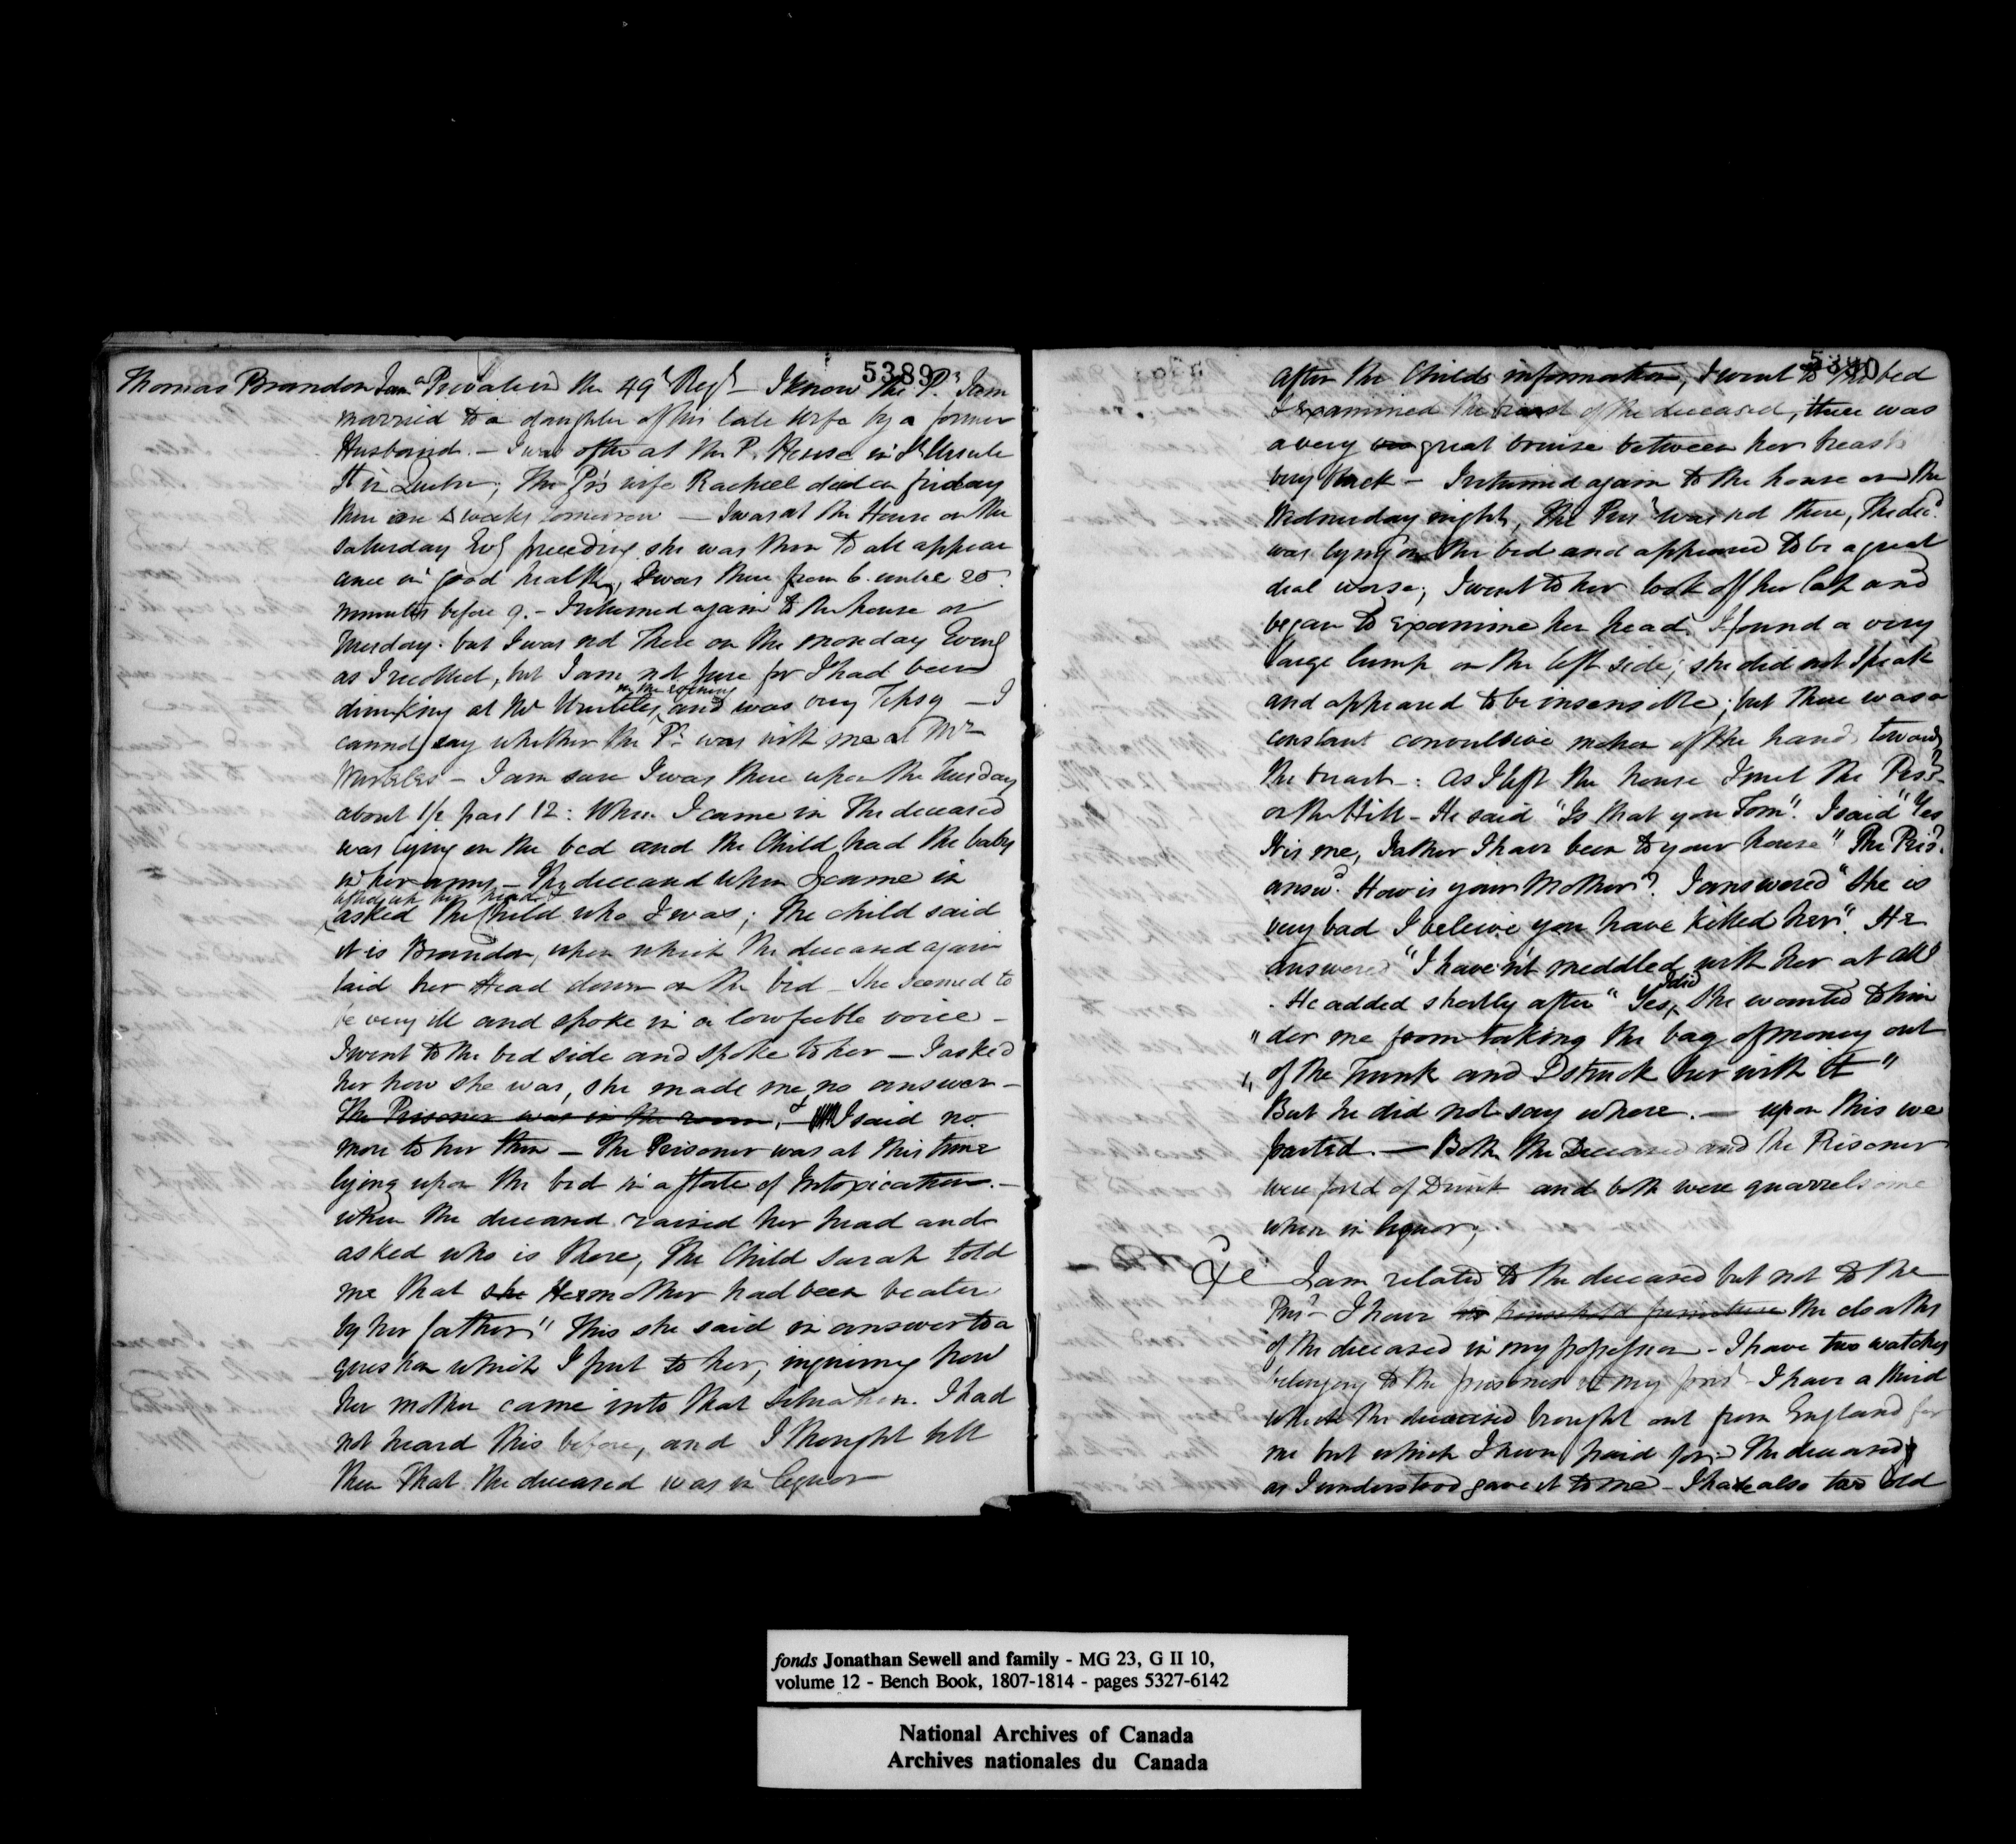 5389
Thomas Brandon I am a Private in the 49th Regt - I know the Pr. I am
married to a daughter of his late Wife by a former
Husband. - I was often at the P. House in St Ursule
St in Quebec; The Pr's wife Rachael died on friday
there are weeks tomorrow - I was at the House on the
Saturday Eve preceding she was then to all appear
ance in good health, I was there from 6. untill 20
minutes before 9. - I returned again to the house on
Tuesday. but I was not there on the monday Eveng
as I recollect, but I am not sure for I had been
in the evening
drinking at Mr and was very Tipsy - I
cannot say whether the Pr was with me at Mr
- I am sure I was there upon the Tuesday
about 1/2 past 12: When I came in the deceased
was lying on the bed and the Child had the baby
in her arms - The deceased when I came in
lifted up her head &
asked the Child who I was; the child said
it is Brandon, upon which the deceased again
laid her Head down on the bed - She seemed to
be very ill and spoke in a low feeble voice -
I went to the bed side and spoke to her - I asked
her how she was, she made me no answer -
The Prisoner was in the room, & I said no
more to her then - The Prisoner was at this time
lying upon the bed in a state of Intoxication. -
when the deceased raised her head and
asked who is there, the Child Sarah told
me that she Her mother had been beaten
by her father" This she said in answer to a
question which I put to her, inquiring how
her mother came into that Situation. I had
not heard this before, and I thought till
then that the deceased was in liquor
5390
After the Childs information, I went to the bed
& Examined the breast of the deceased, there was
a very great bruise between her breasts
very black - I returned again to the house on the
Wednesday night, the Prisr was not there, The decd.
was lying on the bed and appeared to be a great
deal worse; I went to her took off her Cap and
began to Examine her head. I found a very
large lump on the left side; she did not speak
and appeared to be insensible; but there was a
constant convulsive motion of the hand towards
the breast -: As I left the house I met the Prisr.
on the Hill - He said "Is that you Tom". I said "Yes
It is me, Father I have been to your house" The Prisr.
answd. How is your Mother?. I answered "She is
very bad I beleive you have killed her". He
answered "I haven't meddled with her at all"
I did
. He added shortly after "Yes, she wanted to hin
" der me from taking the bag of money out
" of the Trunk and I struck her with it"
But he did not say where. - upon this we
parted. - Both the Deceased and the Prisoner
were fond of Drink and both were quarrelsome
when in liquor.
I am related to the deceased but not to the
Prisr - I have his household furniture the cloaths
of the deceased in my possession - I have two watches
belonging to the prisoner in my - I have a third
which the deceased brought out from England for
me but which I have paid for - The deceased
as I understood gave it to me - I have also two old
fonds Jonathan Sewell and family - MG 23, G II 10,
volume 12 - Bench Book, 1807-1814 - pages 5327-6142
National Archives of Canada
Archives nationales du Canada